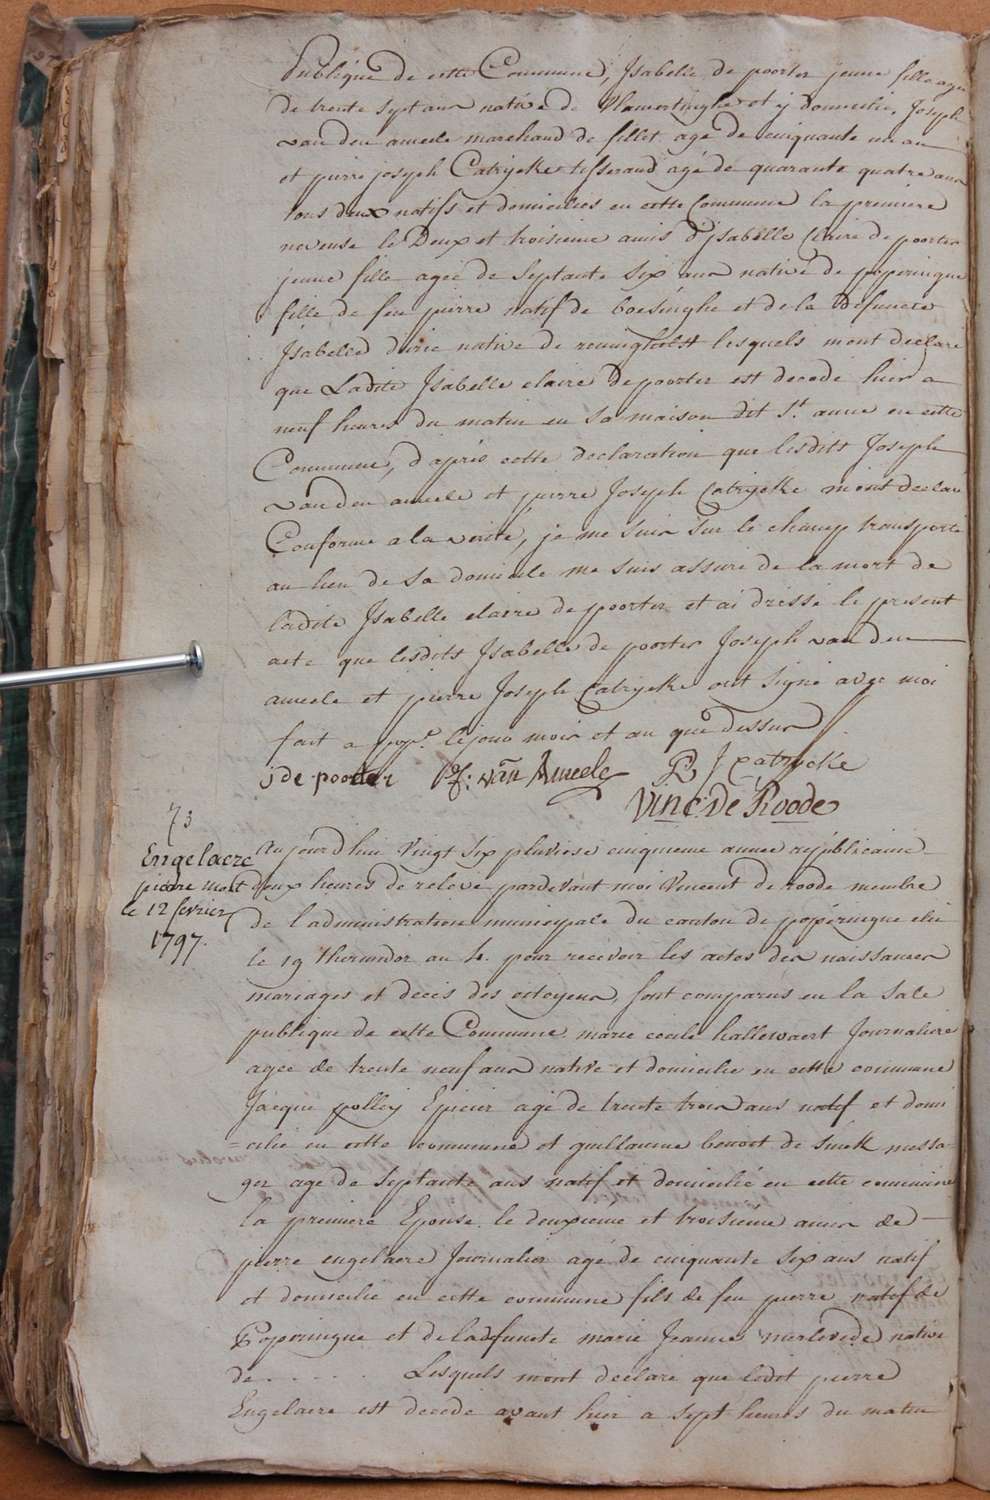 Publique de cette Commune, Isabelle de poorter jeune fille agee
de trente sept ans native de Vlamertinghe et y domicilie, Joseph
van den ameele marchand de fillet agé de cinquante un an
et pierre joseph Catrycke tisserand agé de quarante quatre ans
tous deux natifs et domicilies en cette Commune la premiere
niveuse le Deux et troisieme amis d'ysabelle Claire de poorter
jeune fille agée de septante six ans native de poperingue
fille de feu pierre natif de boesinghe et de la defuncte
Isabelle native de reninghelst lesquels mont declaré
que Ladite Isabelle claire depoorter est decede hier a
neuf heures du matin en sa maison dit St. anne en cette
Commune, d'aprés cette declaration que lesdits Joseph
van den ameele et pierre Joseph Catrycke mont declaré
Conforme a la verité, je me suis sur le champ transporté
au lieu de sa domicile me suis assuré de la mort de
ladite Isabelle claire de poorter et ai dressé le present
acte que lesdits Isabelle de poorter Joseph van den
ameele et pierre Joseph Catrycke ont signé avec moi
fait a pop.e le jour mois et an que dessus
j de poorter J: van Ameele P J Catrycke
Vinc: De Roode
73
Engelaere
pierre mort
le 12 fevrier
1797.
Aujourd'hui vingt six pluviose cinquieme année républicaine
deux heures de relevé pardevant moi Vincent de roode membre
de l'administration municipale du canton de popéringue elu
le 19 thermidor an 4. pour recevoir les actes des naissances
mariages et décis des citoyens, sont comparus en la sale
publique de cette Commune marie cecile hallewaert Journaliere
agee de trente neuf ans native et domicilie en cette commune
Jacque polley Epicier agé de trente trois ans natif et domi
=cilié en cette commune et guillaume benoot de smek messa-
ger age de septante ans natif et domicilié en cette commune
la premiere Epouse le deuxieme et troisieme amis de
pierre engelaere Journalier agé de cinquante six ans natif
et domicilie en cette commune fils de feu pierre natif de
Poperingue et de la defuncte marie Jeanne merlevede native
de . . . . . Lesquels mont declare que ledit pierre
Engelaere est decede avant hier a sept heures du matin